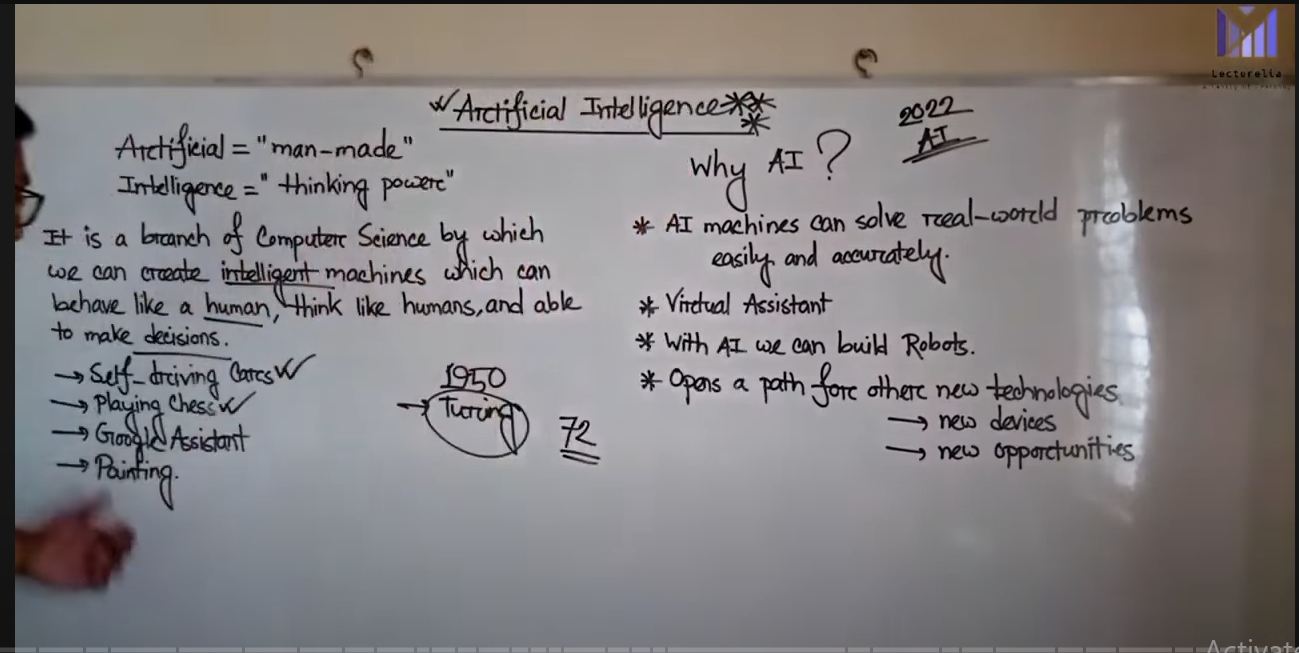 Artificial Intelligence
2022
AI
Artificial = "man-made"
Intelligence = "thinking power"
It is a branch of Computer Science by which
we can create intelligent machines which can
behave like a human, think like humans, and able
to make decisions.
→ Self-driving Cars
→ Playing Chess
→ Google Assistant
→ Painting.
1950
→ Turing
72
Why AI ?
* AI machines can solve real-world problems
easily and accurately.
* Virtual Assistant
* With AI we can build Robots.
* Opens a path for other new technologies.
→ new devices
→ new opportunities
Lecturelia
Activate